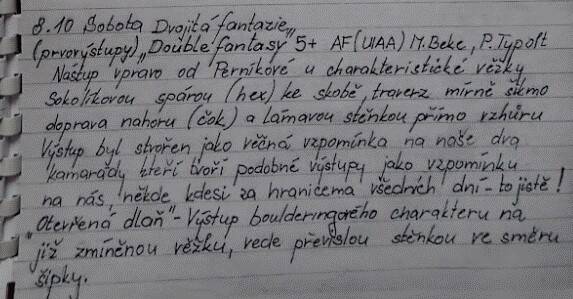 8.10 Sobota Dvojitá fantazie„
(prvovýstupy) „Double fantasy" 5+ AF (UIAA) M. Beke, P. Typolt
Nástup vpravo od Perníkové u charakteristické věžky
Sokolíkovou spárou (hex) ke skobě, traverz mírně šikmo
doprava nahoru (čok) a lámavou stěnkou přímo vzhůru
Výstup byl stvořen jako věčná vzpomínka na naše dva
kamarády kteří tvoří podobné výstupy jako vzpomínku
na nás, někde kdesi za hranicema všedních dní - to jistě!
„Otevřená dlaň" - Výstup boulderingového charakteru na
již zmíněnou věžku, vede převislou stěnkou ve směru
šipky.